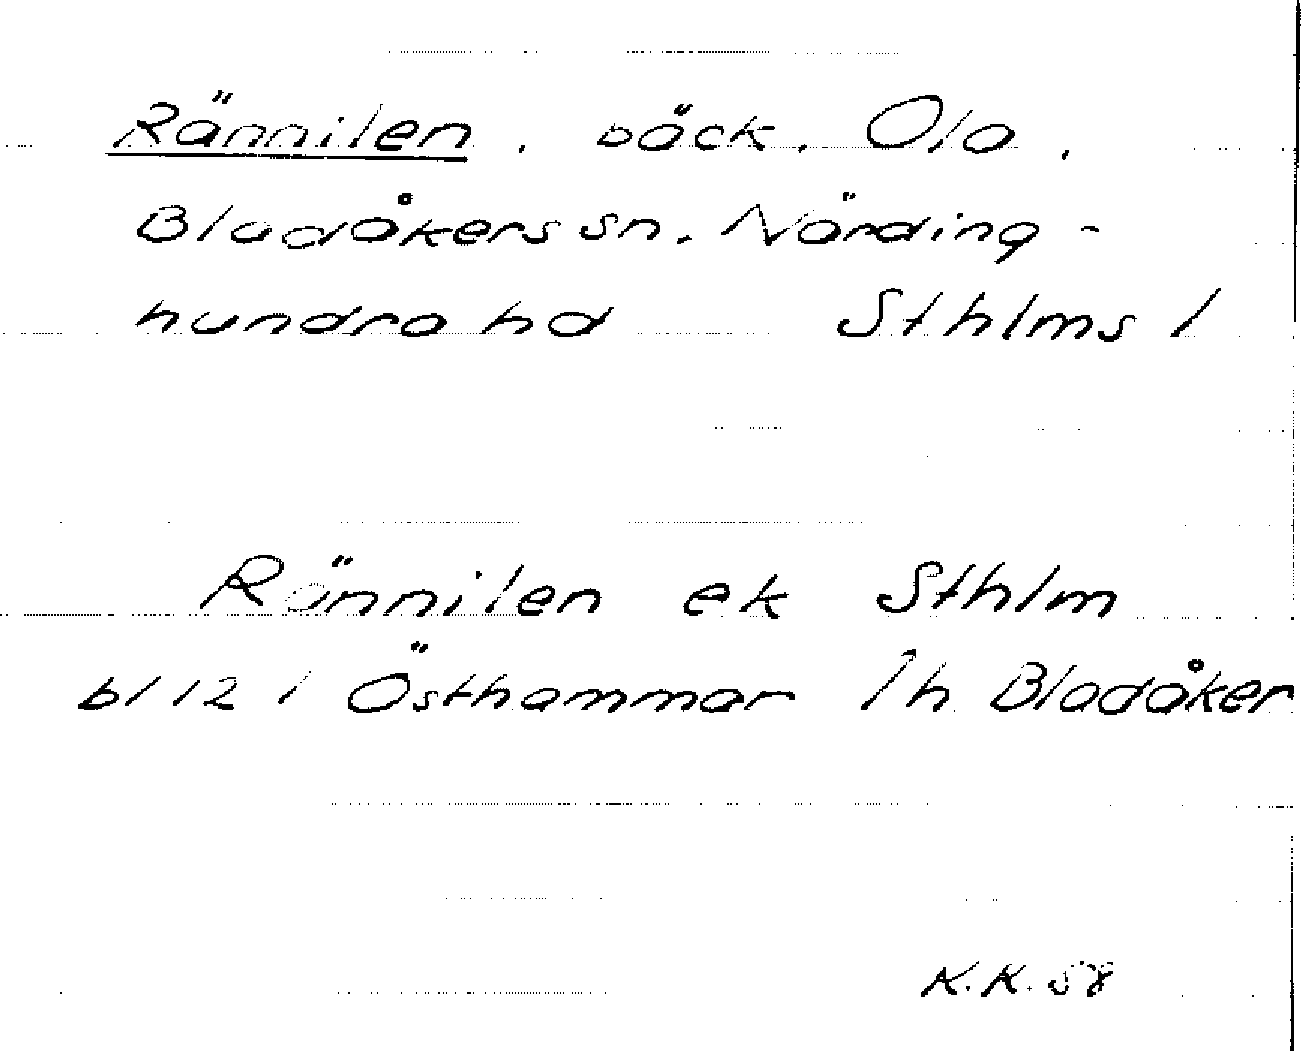 Rännilen, bäck, Ola,
Bladåkers sn, Närding-
hundra hd Sthlms l
Rännilen ek Sthlm
bl 12 i Östhammar Ih Bladåker
K.K. 58